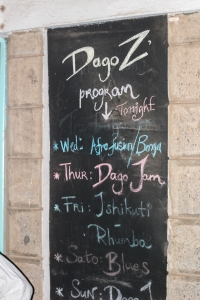 DagoZ'
program
↓ Tonight
* Wed: Afrofusion/Bonga
* Thur: Dago Jam
* Fri: Ishikuti
Rhumba
* Sato: Blues
* Sun: Dago J